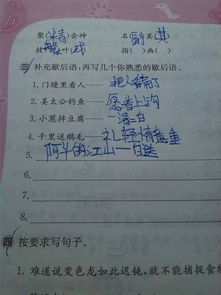 聚(精)会神 名(副)其(其)
按(蟹)叶(戏) 指( )画( )
三 补充歇后语,再写几个你熟悉的歇后语。
1. 门缝里看人——把人看扁了
2. 姜太公钓鱼——愿者上钩
3. 小葱拌豆腐——一清二白
4. 千里送鹅毛——礼轻情意重
5. 阿斗的江山——白送
四 按要求写句子。
1. 难道说变色龙如此迟钝,就不能捕捉食